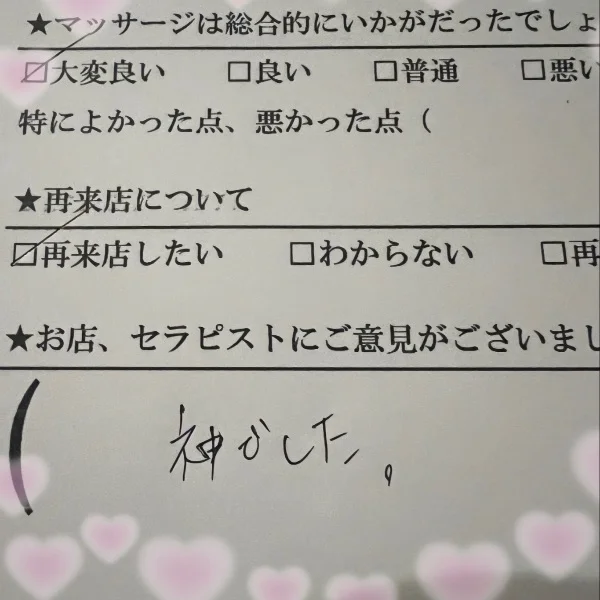 ★マッサージは総合的にいかがだったでしょ
☑大変良い □良い □普通 □悪い
特によかった点、悪かった点（
★再来店について
☑再来店したい □わからない □再
★お店、セラピストにご意見がございまし
（ 神でした。